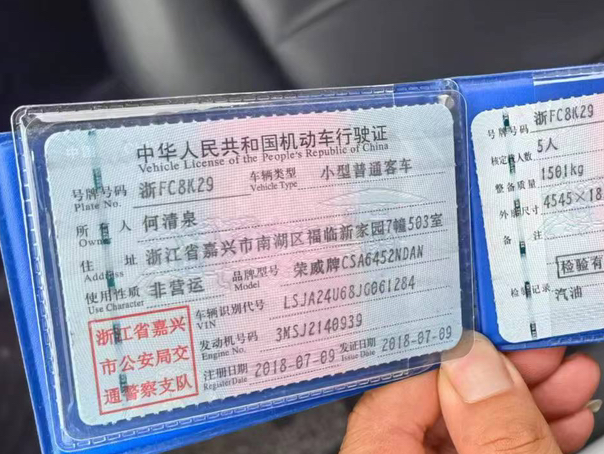 中华人民共和国机动车行驶证
Vehicle License of the People's Republic of China
号牌号码 浙FC8K29 车辆类型 小型普通客车
Plate No. Vehicle Type
所有人 何清泉
Owner
住址 浙江省嘉兴市南湖区福临新家园7幢503室
Address
使用性质 非营运 品牌型号 荣威牌CSA6452NDAN
Use Character Model
车辆识别代号 LSJA24U68JG061284
VIN
发动机号码 3MSJ2140939
Engine No.
注册日期 2018-07-09 发证日期 2018-07-09
Register Date Issue Date
浙江省嘉兴
市公安局交
通警察支队
号牌号码 浙FC8K29
核定载人数 5人
整备质量 1501kg
外廓尺寸 4545×18
备注
检验有
检验记录 汽油